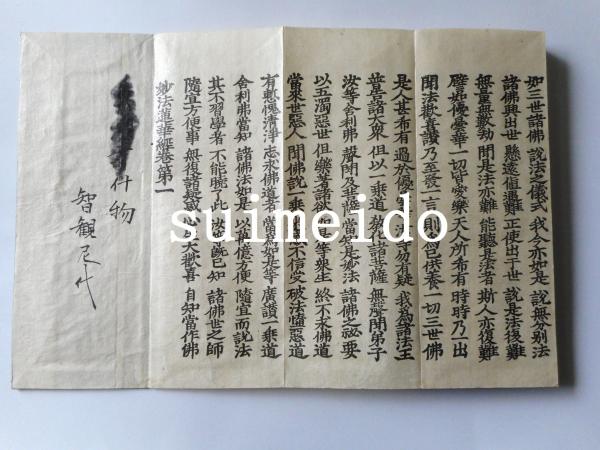 如三世諸佛 說法之儀式 我今亦如是 說無分別法
諸佛興出世 懸遠值遇難 正使出于世 說是法復難
無量無數劫 聞是法亦難 能聽是法者 斯人亦復難
譬如優曇華 一切皆愛樂 天人所希有 時時乃一出
聞法歡喜讚 乃至發一言 則為已供養 一切三世佛
是人甚希有 過於優曇華 汝等勿有疑 我為諸法王
普告諸大衆 但以一乘道 教化諸菩薩 無聲聞弟子
汝等舍利弗 聲聞及菩薩 當知是妙法 諸佛之祕要
以五濁惡世 但樂著諸欲 如是等衆生 終不求佛道
當來世惡人 聞佛說一乘 迷惑不信受 破法墮惡道
有慙愧清淨 志求佛道者 當為如是等 廣讚一乘道
舍利弗當知 諸佛法如是 以萬億方便 隨宜而說法
其不習學者 不能曉了此 汝等既已知 諸佛世之師
隨宜方便事 無復諸疑惑 心生大歡喜 自知當作佛
妙法蓮華經卷第一
什物
智観尼代
suimeido